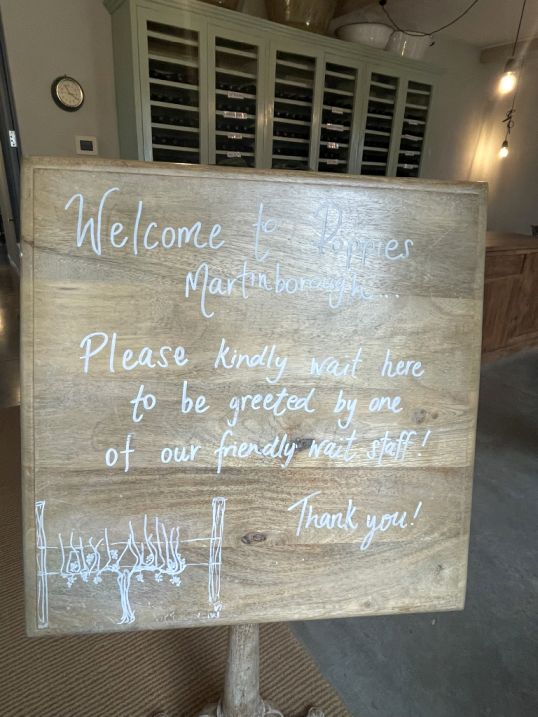 Welcome to Poppies
Martinborough...
Please kindly wait here
to be greeted by one
of our friendly wait staff!
Thank you!